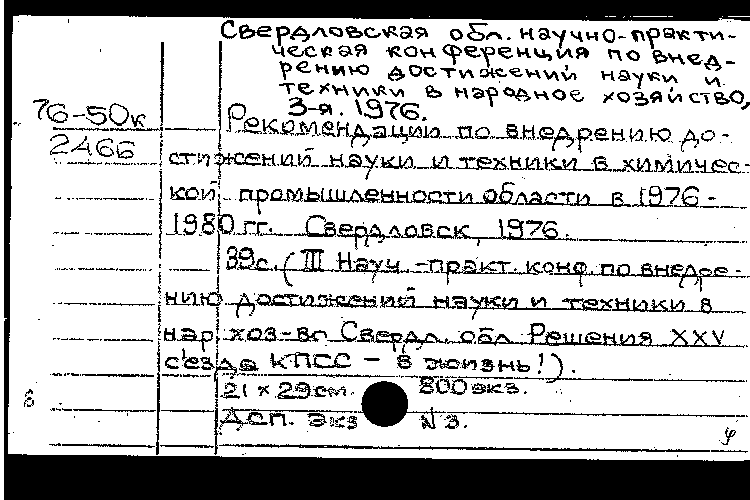 Свердловская обл. научно-практи-
ческая конференция по внед-
рению достижений науки и
техники в народное хозяйство,
3-я. 1976.
76-50к
2466
Рекомендации по внедрению до-
стижений науки и техники в химичес-
кой промышленности области в 1976-
1980 гг. Свердловск, 1976.
39с. (III Науч.-практ. конф. по внедре-
нию достижений науки и техники в
нар. хоз-во Свердл. обл. Решения XXV
с'езда КПСС - в жизнь!).
21 x 29 см. 800 экз.
ДСП. Экз N 3.